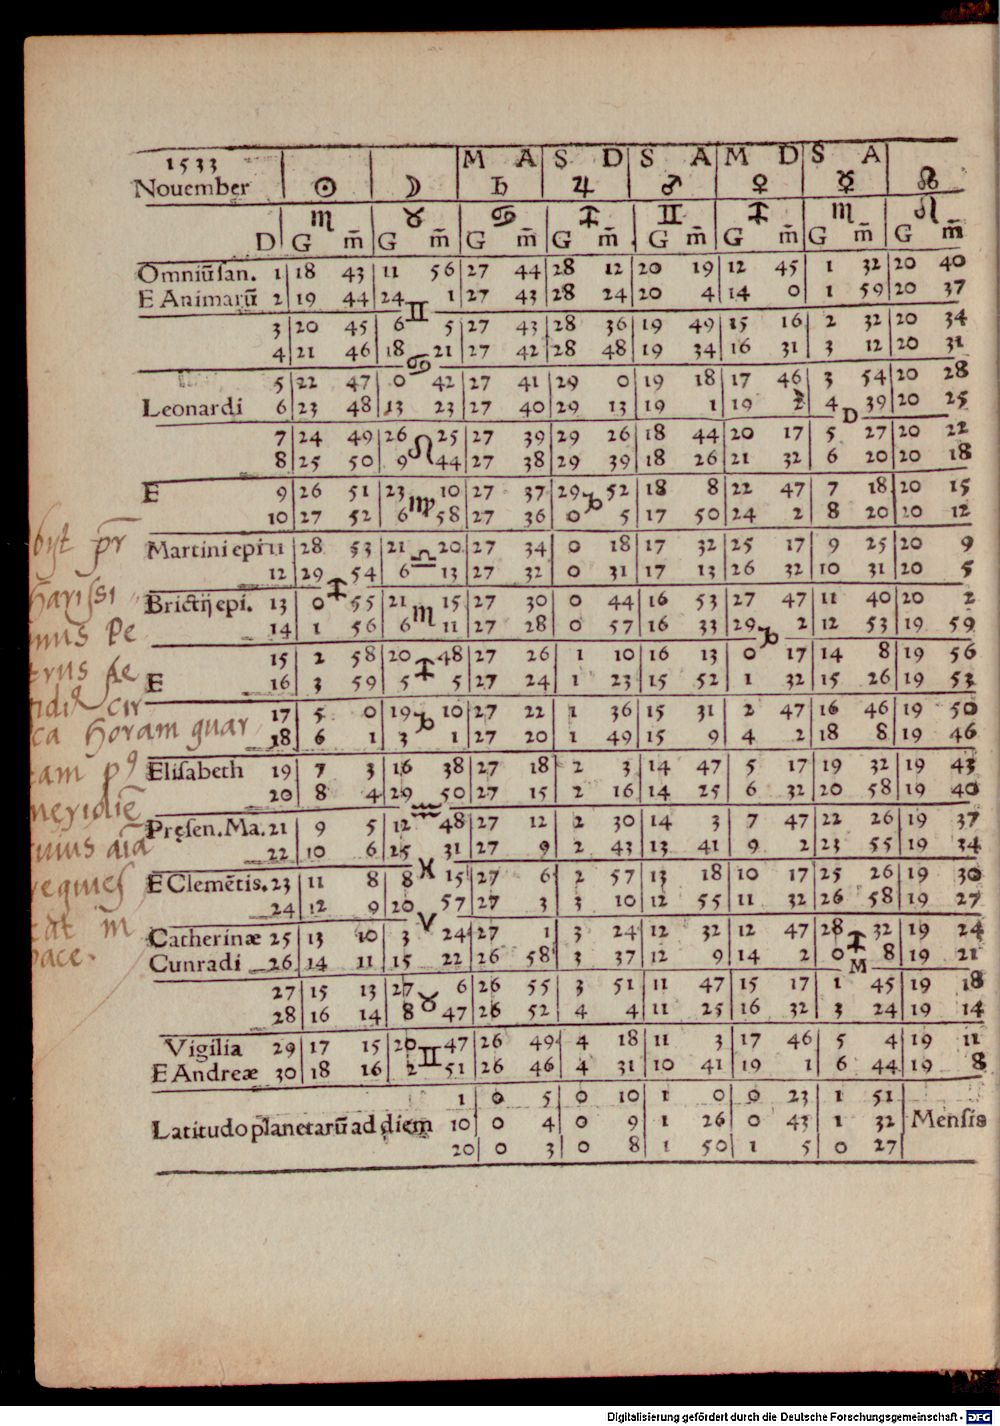 1533 M A S D S A M D S A
Nouember ☉ ☽ ♄ ♃ ♂ ♀ ☿ ☊
♏ ♉ ♋ ♐ ♊ ♐ ♏ ♌
D G m̄ G m̄ G m̄ G m̄ G m̄ G m̄ G m̄ G m̄
Omniū san. 1 18 43 11 56 27 44 28 12 20 19 12 45 1 32 20 40
E Animarū 2 19 44 24 1 27 43 28 24 20 4 14 0 1 59 20 37
♊
3 20 45 6 5 27 43 28 36 19 49 15 16 2 32 20 34
4 21 46 18 21 27 42 28 48 19 34 16 31 3 12 20 31
♋
5 22 47 0 42 27 41 29 0 19 18 17 46 3 54 20 28
Leonardi 6 23 48 13 23 27 40 29 13 19 1 19 2 4 39 20 25
D
7 24 49 26 25 27 39 29 26 18 44 20 17 5 27 20 22
♌
8 25 50 9 44 27 38 29 39 18 26 21 32 6 20 20 18
E 9 26 51 23 10 27 37 29 52 18 8 22 47 7 18 20 15
♍ ♑
10 27 52 6 58 27 36 0 5 17 50 24 2 8 20 20 12
Martini epi 11 28 53 21 20 27 34 0 18 17 32 25 17 9 25 20 9
♎
12 29 54 6 13 27 32 0 31 17 13 26 32 10 31 20 5
♐
Brictij epi. 13 0 55 21 15 27 30 0 44 16 53 27 47 11 40 20 2
♏
14 1 56 6 11 27 28 0 57 16 33 29 2 12 53 19 59
♑
15 2 58 20 48 27 26 1 10 16 13 0 17 14 8 19 56
♐
E 16 3 59 5 5 27 24 1 23 15 52 1 32 15 26 19 53
17 5 0 19 10 27 22 1 36 15 31 2 47 16 46 19 50
♑
18 6 1 3 1 27 20 1 49 15 9 4 2 18 8 19 46
Elisabeth 19 7 3 16 38 27 18 2 3 14 47 5 17 19 32 19 43
20 8 4 29 50 27 15 2 16 14 25 6 32 20 58 19 40
♒
Pręsen. Ma. 21 9 5 12 48 27 12 2 30 14 3 7 47 22 26 19 37
22 10 6 25 31 27 9 2 43 13 41 9 2 23 55 19 34
♓
E Clemētis. 23 11 8 8 15 27 6 2 57 13 18 10 17 25 26 19 30
24 12 9 20 57 27 3 3 10 12 55 11 32 26 58 19 27
♈
Catherinæ 25 13 10 3 24 27 1 3 24 12 32 12 47 28 32 19 24
♐
Cunradi 26 14 11 15 22 26 58 3 37 12 9 14 2 0 8 19 21
M
27 15 13 27 6 26 55 3 51 11 47 15 17 1 45 19 18
♉
28 16 14 8 47 26 52 4 4 11 25 16 32 3 24 19 14
Vigilia 29 17 15 20 47 26 49 4 18 11 3 17 46 5 4 19 11
♊
E Andreæ 30 18 16 2 51 26 46 4 31 10 41 19 1 6 44 19 8
1 0 5 0 10 1 0 0 23 1 51
Latitudo planetarū ad diem 10 0 4 0 9 1 26 0 43 1 32 Mensis
20 0 3 0 8 1 50 1 5 0 27
mus Pe
trus
cir
ca horam quar
tam
meridiē
pace.
Digitalisierung gefördert durch die Deutsche Forschungsgemeinschaft - DFG